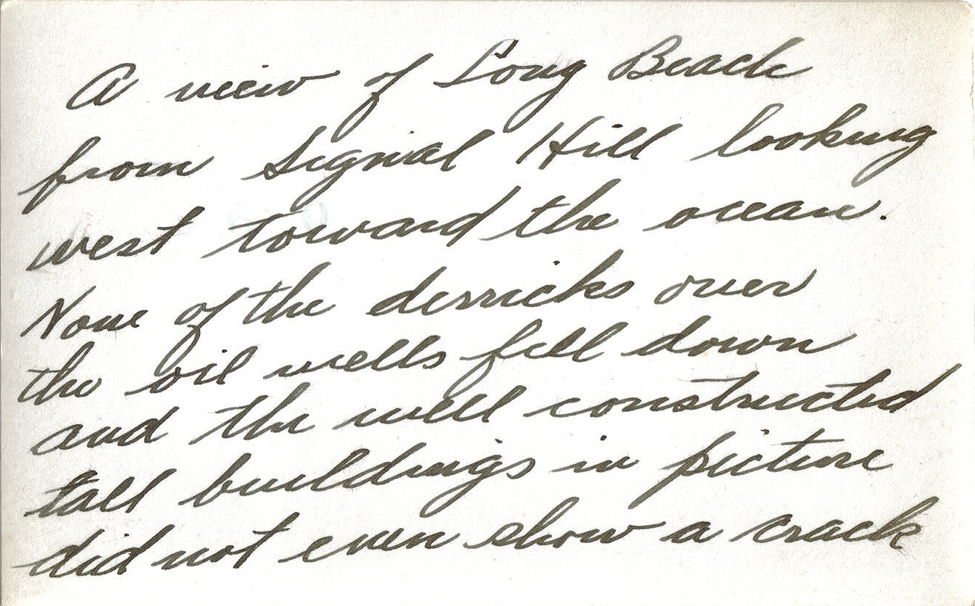 A view of Long Beach
from Signal Hill looking
west toward the ocean.
None of the derricks over
the oil wells fell down
and the well constructed
tall buildings in picture
did not even show a crack